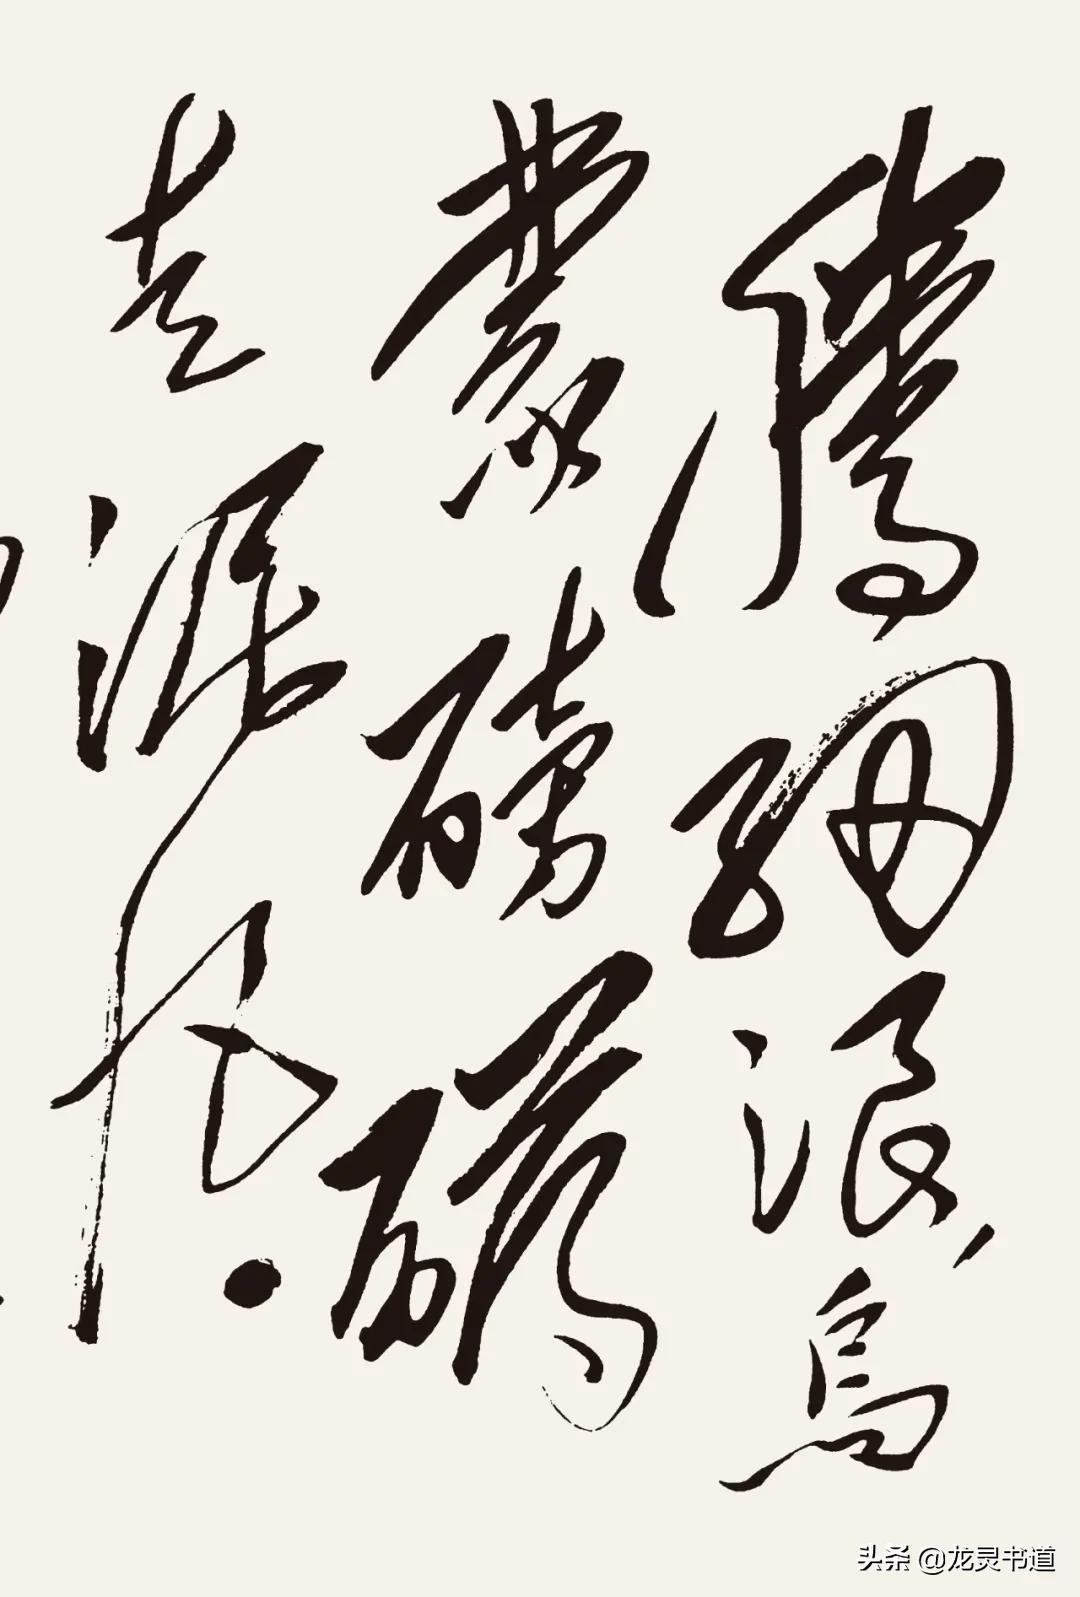 騰細浪,烏
蒙磅礴
走泥丸.
头条 @龙灵书道